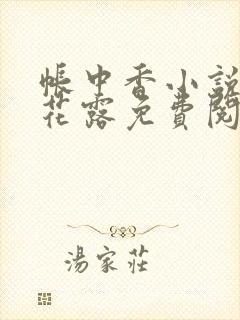 帳中香小說
花露免費閱
湯家莊